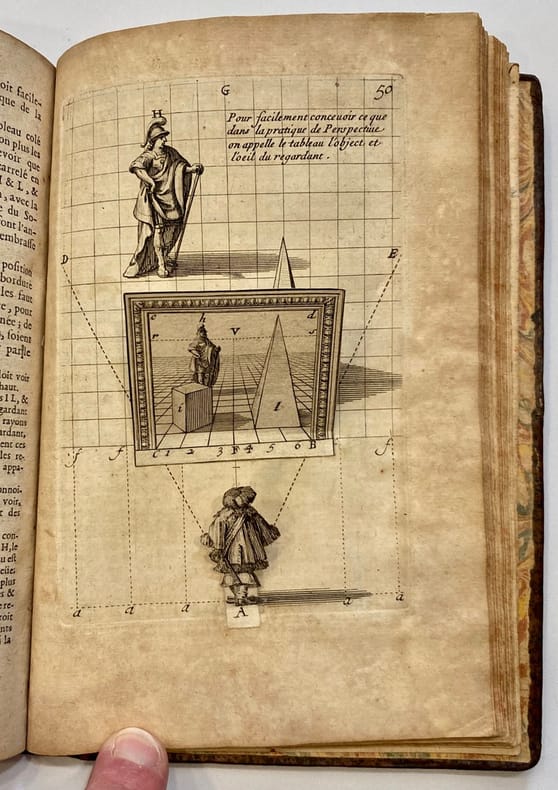 oit facile-
que de la
bleau colé
on plus les
evoir que
arrelé en
I & L, &
n, avec la
e du So-
font l'an-
embrasse
position
bordure
les faut
re, pour
née; de
o, soient
par elle
loit voir
haut.
s I L, &
gardant
rayons
ardant,
nent ces
les re-
appa-
onnoi-
voir,
t des
con-
H, le
u est
plus
s &
e re-
roit
nts
i la
G
50
H
Pour facilement conceuoir ce que
dans la pratique de Perspectiue
on appelle le tableau l'object et
l'oeil du regardant .
D
E
c h d
r V s
i l
f f C 1 2 3 F 4 5 6 B f
a a a A a a